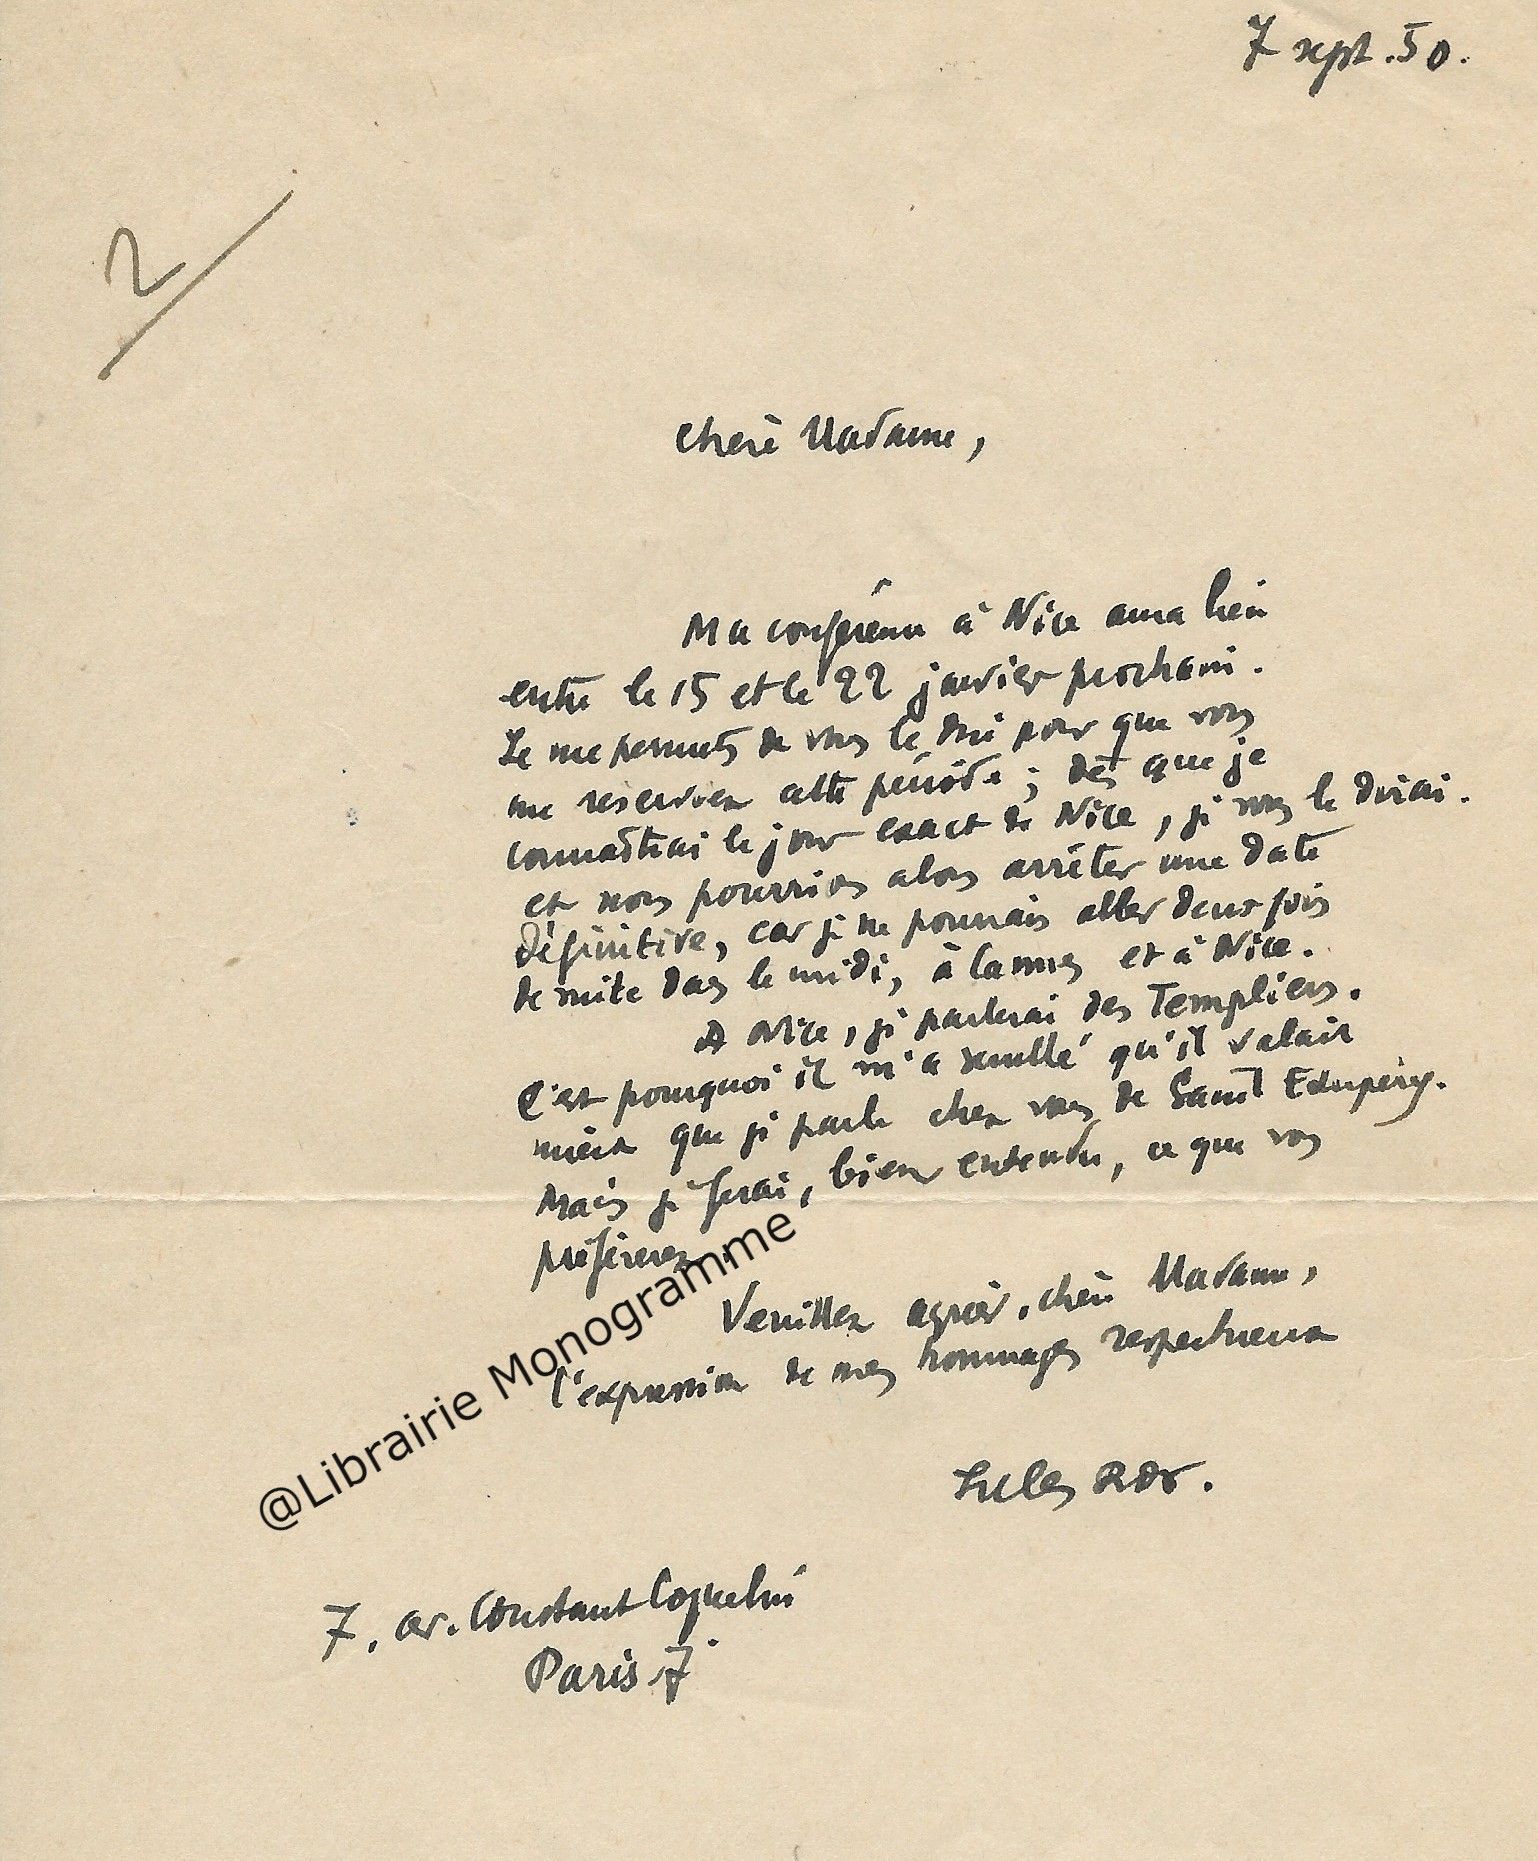 7 sept. 50.
2
Chère Madame,
Ma conférence à Nice aura lieu
entre le 15 et le 22 janvier prochain.
Je me permets de vous le dire pour que vous
me réserviez cette période ; dès que je
connaîtrai le jour exact de Nice, je vous le dirai.
et nous pourrions alors arrêter une date
définitive, car je ne pourrais aller deux fois
de suite dans le midi, à Cannes et à Nice.
A Nice, je parlerai des Templiers.
C'est pourquoi il m'a semblé qu'il valait
mieux que je parle chez vous de Saint Exupéry.
Mais je ferai, bien entendu, ce que vous
préférerez.
Veuillez agréer, chère Madame,
l'expression de mes hommages respectueux
Jules Roy.
7, av. Constant Coquelin
Paris 7
@Librairie Monogramme